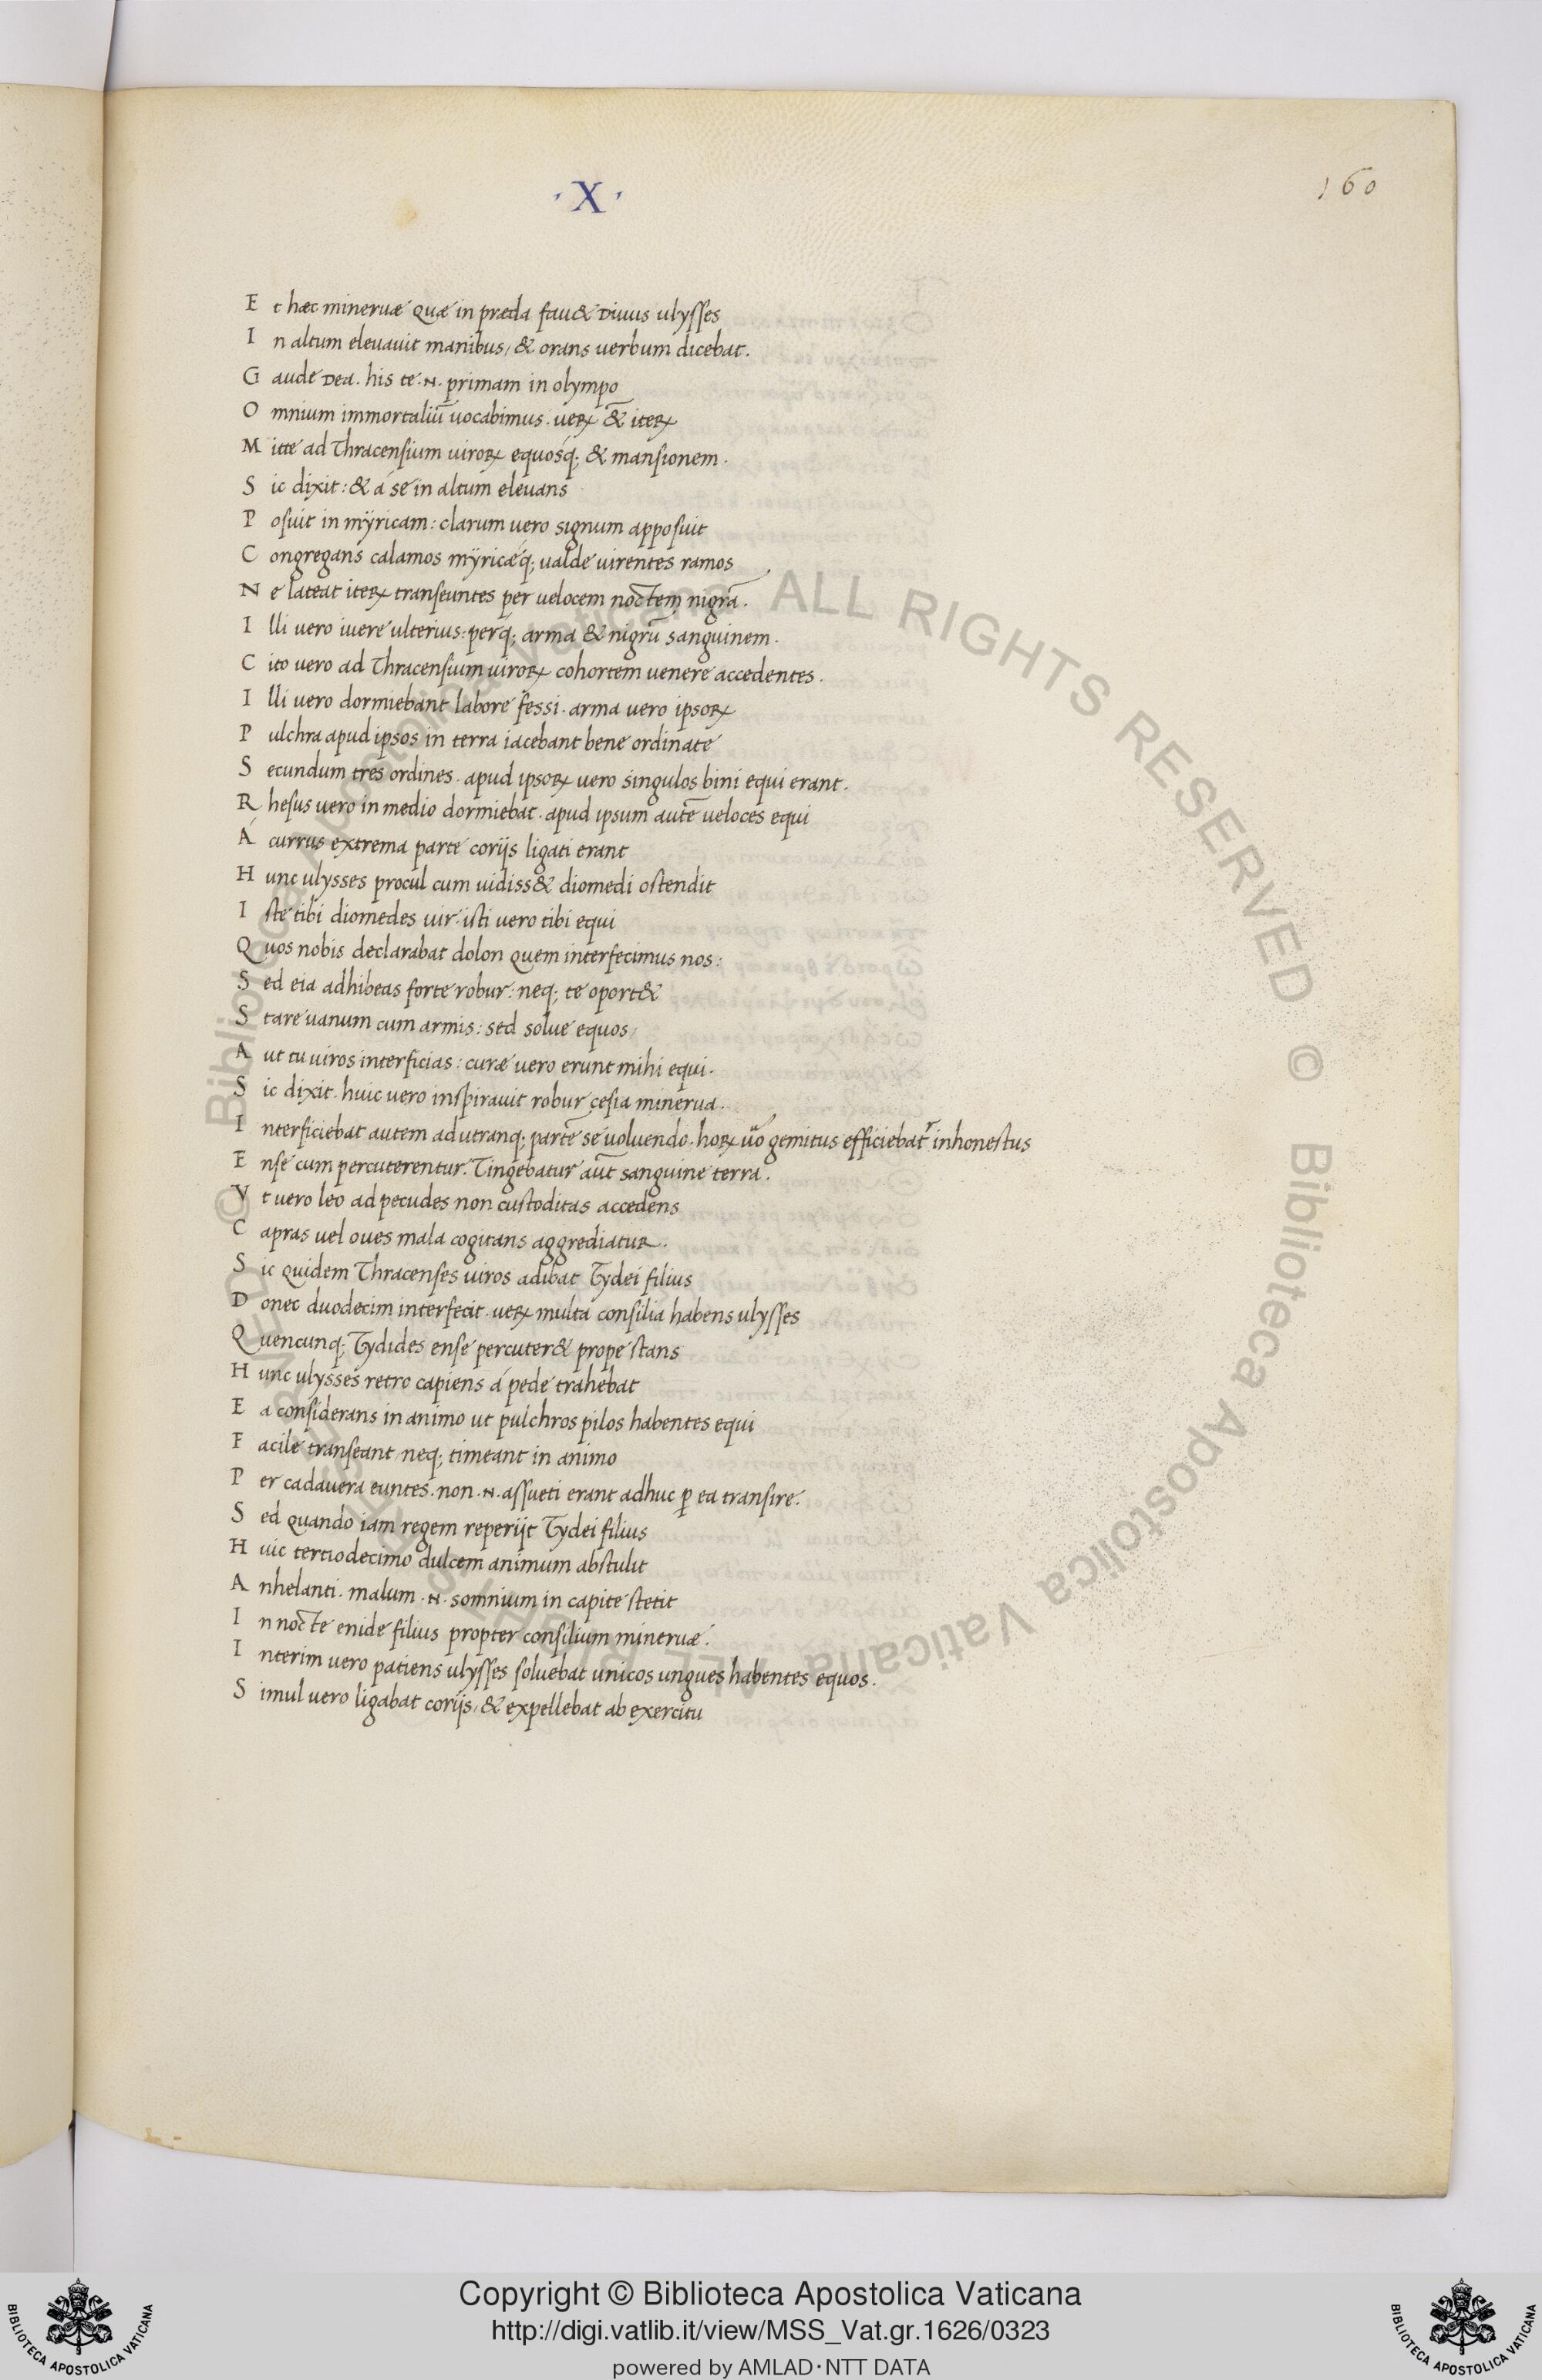 · X ·
160
E t hæc mineruæ quæ in præda fau& Diuus ulysses
I n altum eleuauit manibus, & orans uerbum dicebat.
G aude Dea. his te .N. primam in olympo
O mnium immortaliū uocabimus. ueRꝝ & iteRꝝ
M itte ad Thracensium uiroꝝ equosq; & mansionem.
S ic dixit: & á se in altum eleuans
P osuit in mÿricam: clarum uero signum apposuit
C ongregans calamos mÿricæq; ualde uirentes ramos
N e lateat iteꝝ transeuntes per uelocem noctem nigrā.
I lli uero iuere ulterius: perq; arma & nigrū sanguinem.
C ito uero ad Thracensium uiroꝝ cohortem uenere accedentes.
I lli uero dormiebant labore fessi. arma uero ipsoꝝ
P ulchra apud ipsos in terra iacebant bene ordinate
S ecundum tres ordines. apud ipsoꝝ uero singulos bini equi erant.
R hesus uero in medio dormiebat. apud ipsum autē ueloces equi
Á currus extrema parte corijs ligati erant
H unc ulysses procul cum uidiss& diomedi ostendit
I ste tibi diomedes uir: isti uero tibi equi
Q uos nobis declarabat dolon quem interfecimus nos:
S ed eia adhibeas forte robur: neq; te oport&
S tare uanum cum armis: sed solue equos,
A ut tu uiros interficias: curæ uero erunt mihi equi.
S ic dixit. huic uero inspirauit robur cesia minerua.
I nterficiebat autem ad utranq; partē se uoluendo. hoꝝ uō gemitus efficiebatr inhonestus
E nse cum percuterentur. Tingebatur aūt sanguine terra.
V t uero leo ad pecudes non custoditas accedens
C apras uel oues mala cogitans aggrediatur.
S ic quidem Thracenses uiros adibat Tydei filius
D onec duodecim interfecit. ueꝝ multa consilia habens ulysses
Q uencunq; Tydides ense percuter& prope stans
H unc ulysses retro capiens á pede trahebat
E a considerans in animo ut pulchros pilos habentes equi
F acile transeant, neq; timeant in animo
P er cadauera euntes. non .N. assueti erant adhuc ꝑ ea transire.
S ed quando iam regem reperijt Tydei filius
H uic tertiodecimo dulcem animum abstulit
A nhelanti. malum .N. somnium in capite stetit
I n nocte enide filius propter consilium mineruæ.
I nterim uero patiens ulysses soluebat unicos ungues habentes equos.
S imul uero ligabat corijs, & expellebat ab exercitu
© Biblioteca Apostolica Vaticana ALL RIGHTS RESERVED © Biblioteca Apostolica Vaticana ALL RIGHTS RESERVED
Copyright © Biblioteca Apostolica Vaticana
http://digi.vatlib.it/view/MSS_Vat.gr.1626/0323
powered by AMLAD·NTT DATA
BIBLIOTECA APOSTOLICA VATICANA
BIBLIOTECA APOSTOLICA VATICANA